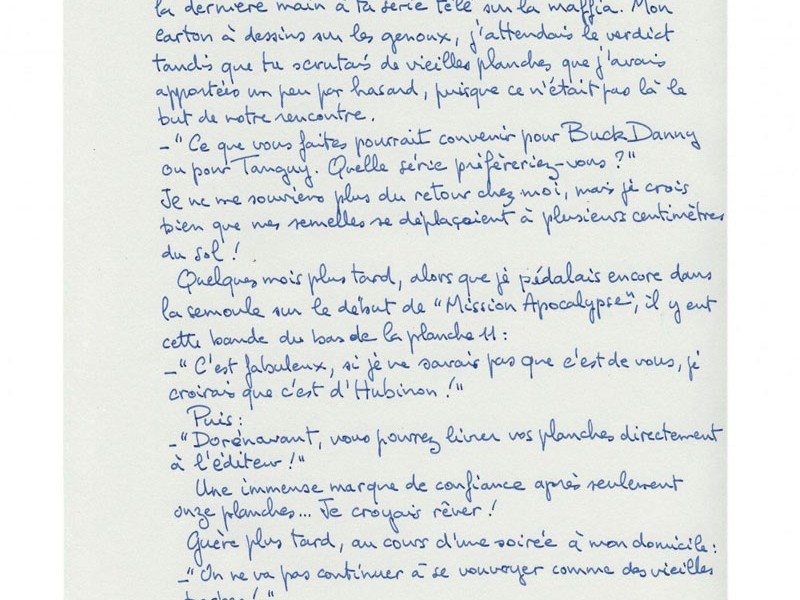 la dernière main à ta série télé sur la maffia. Mon
carton à dessins sur les genoux, j'attendais le verdict
tandis que tu scrutais de vieilles planches que j'avais
apportées un peu par hasard, puisque ce n'était pas là le
but de notre rencontre.
-"Ce que vous faites pourrait convenir pour Buck Danny
ou pour Tanguy. Quelle série préfèreriez-vous ?"
Je ne me souviens plus du retour chez moi, mais je crois
bien que mes semelles se déplaçaient à plusieurs centimètres
du sol !
Quelques mois plus tard, alors que je pédalais encore dans
la semoule sur le début de "Mission Apocalypse", il y eut
cette bande du bas de la planche 11 :
-"C'est fabuleux, si je ne savais pas que c'est de vous, je
croirais que c'est d'Hubinon !"
Puis :
-"Dorénavant, vous pourrez livrer vos planches directement
à l'éditeur !"
Une immense marque de confiance après seulement
onze planches... Je croyais rêver !
Guère plus tard, au cours d'une soirée à mon domicile :
-"On ne va pas continuer à se vouvoyer comme des vieilles